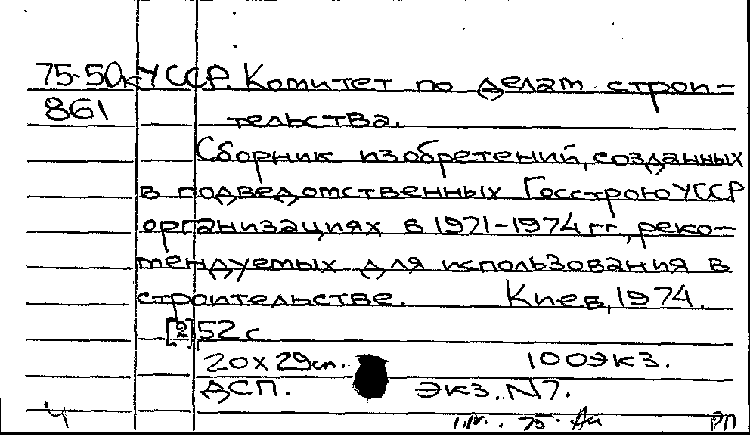 75-50к УССР. Комитет по делам строи-
861 тельства.
Сборник изобретений, созданных
в подведомственных Госстрою УССР
организациях в 1971-1974 гг., реко-
мендуемых для использования в
строительстве. Киев, 1974.
52 с
20х29 см. 100 экз.
ДСП. Экз. N7.
Ч РП